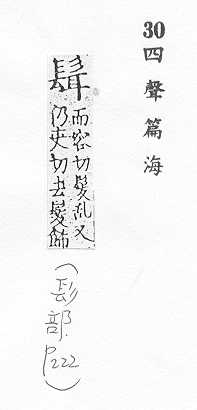 30四聲篇海
髶
而容切髮乱又
仍吏切去髮飾
(髟部 P222)